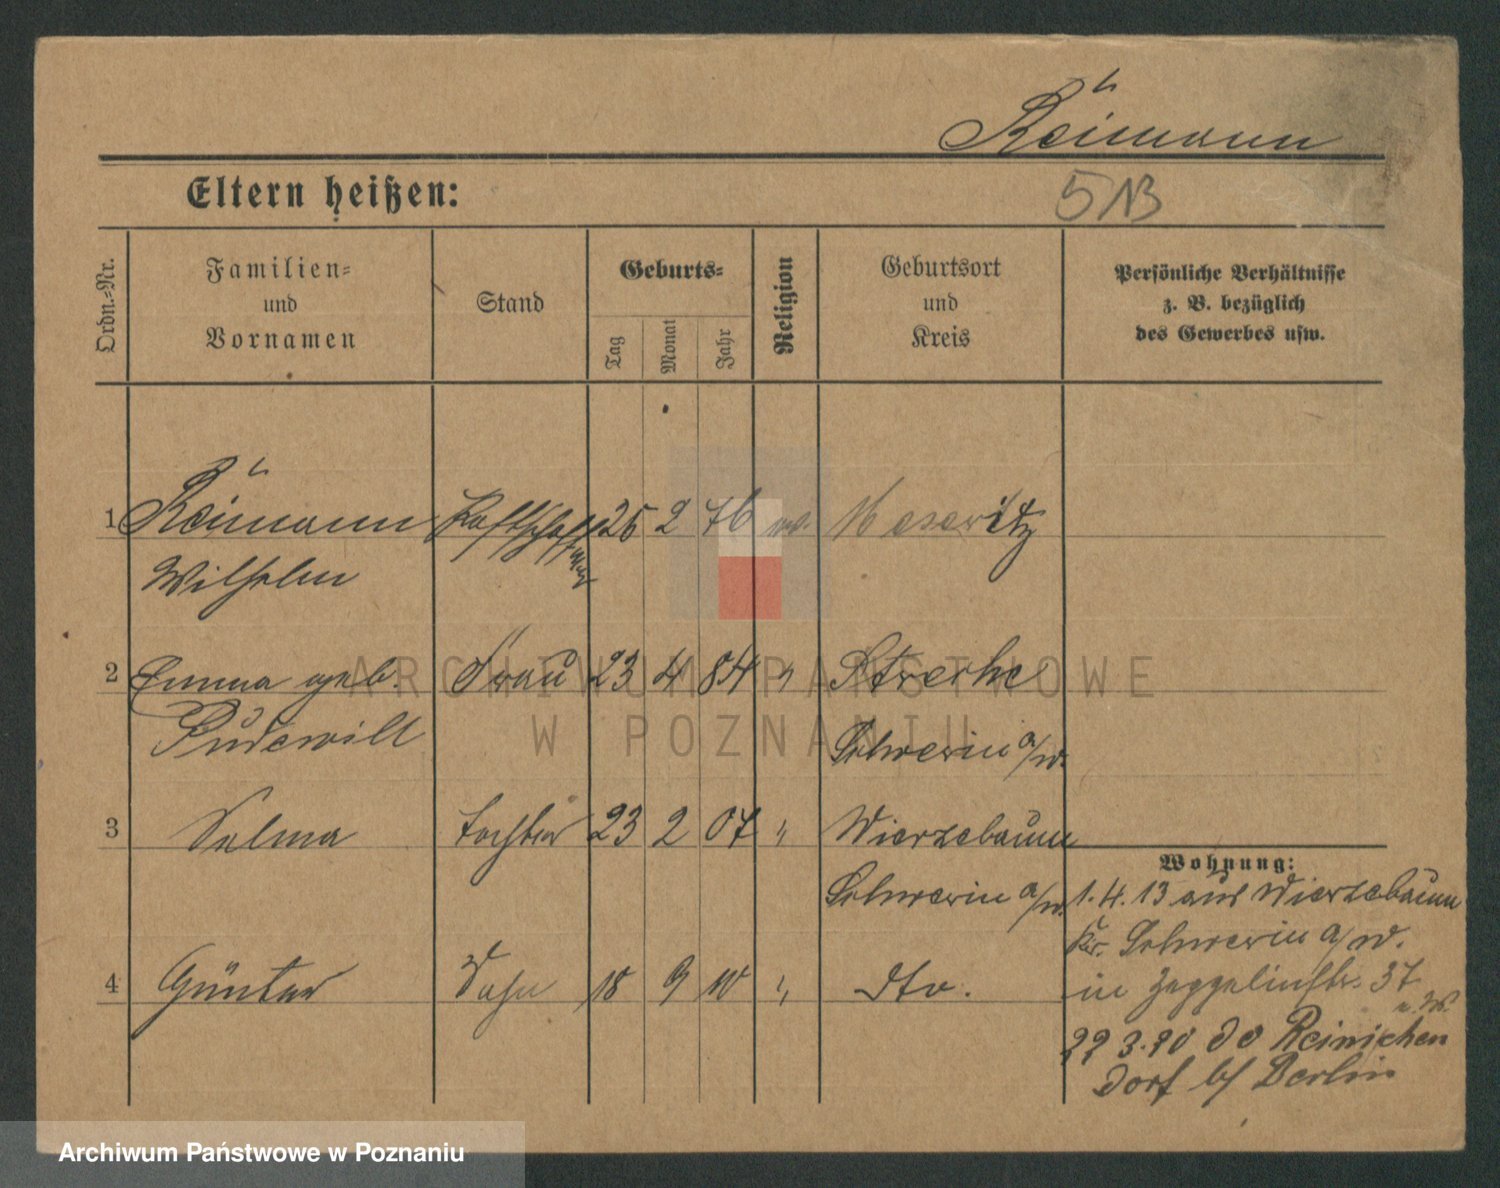 Reimann
Eltern heißen:
513
Ordn.-Nr.
Familien-
und
Vornamen
Stand
Geburts-
Tag
Monat
Jahr
Religion
Geburtsort
und
Kreis
Persönliche Verhältnisse
z. B. bezüglich
des Gewerbes usw.
1 Reimann 25 2 76 Meseritz
Wilhelm
2 Emma geb. Frau 23 4 84 " Strerke
Pudewill Schwerin a/W.
3 Selma Tochter 23 2 07 " Wierzebaum
Schwerin a/W.
4 Günter Sohn 18 9 10 " dto.
Wohnung:
1.4.13 aus Wierzebaum
Kr. Schwerin a/W.
in Zeppelinstr. 37
22 3.20 do Reinicken
dorf b/ Berlin
ARCHIWUM PAŃSTWOWE
W POZNANIU
Archiwum Państwowe w Poznaniu